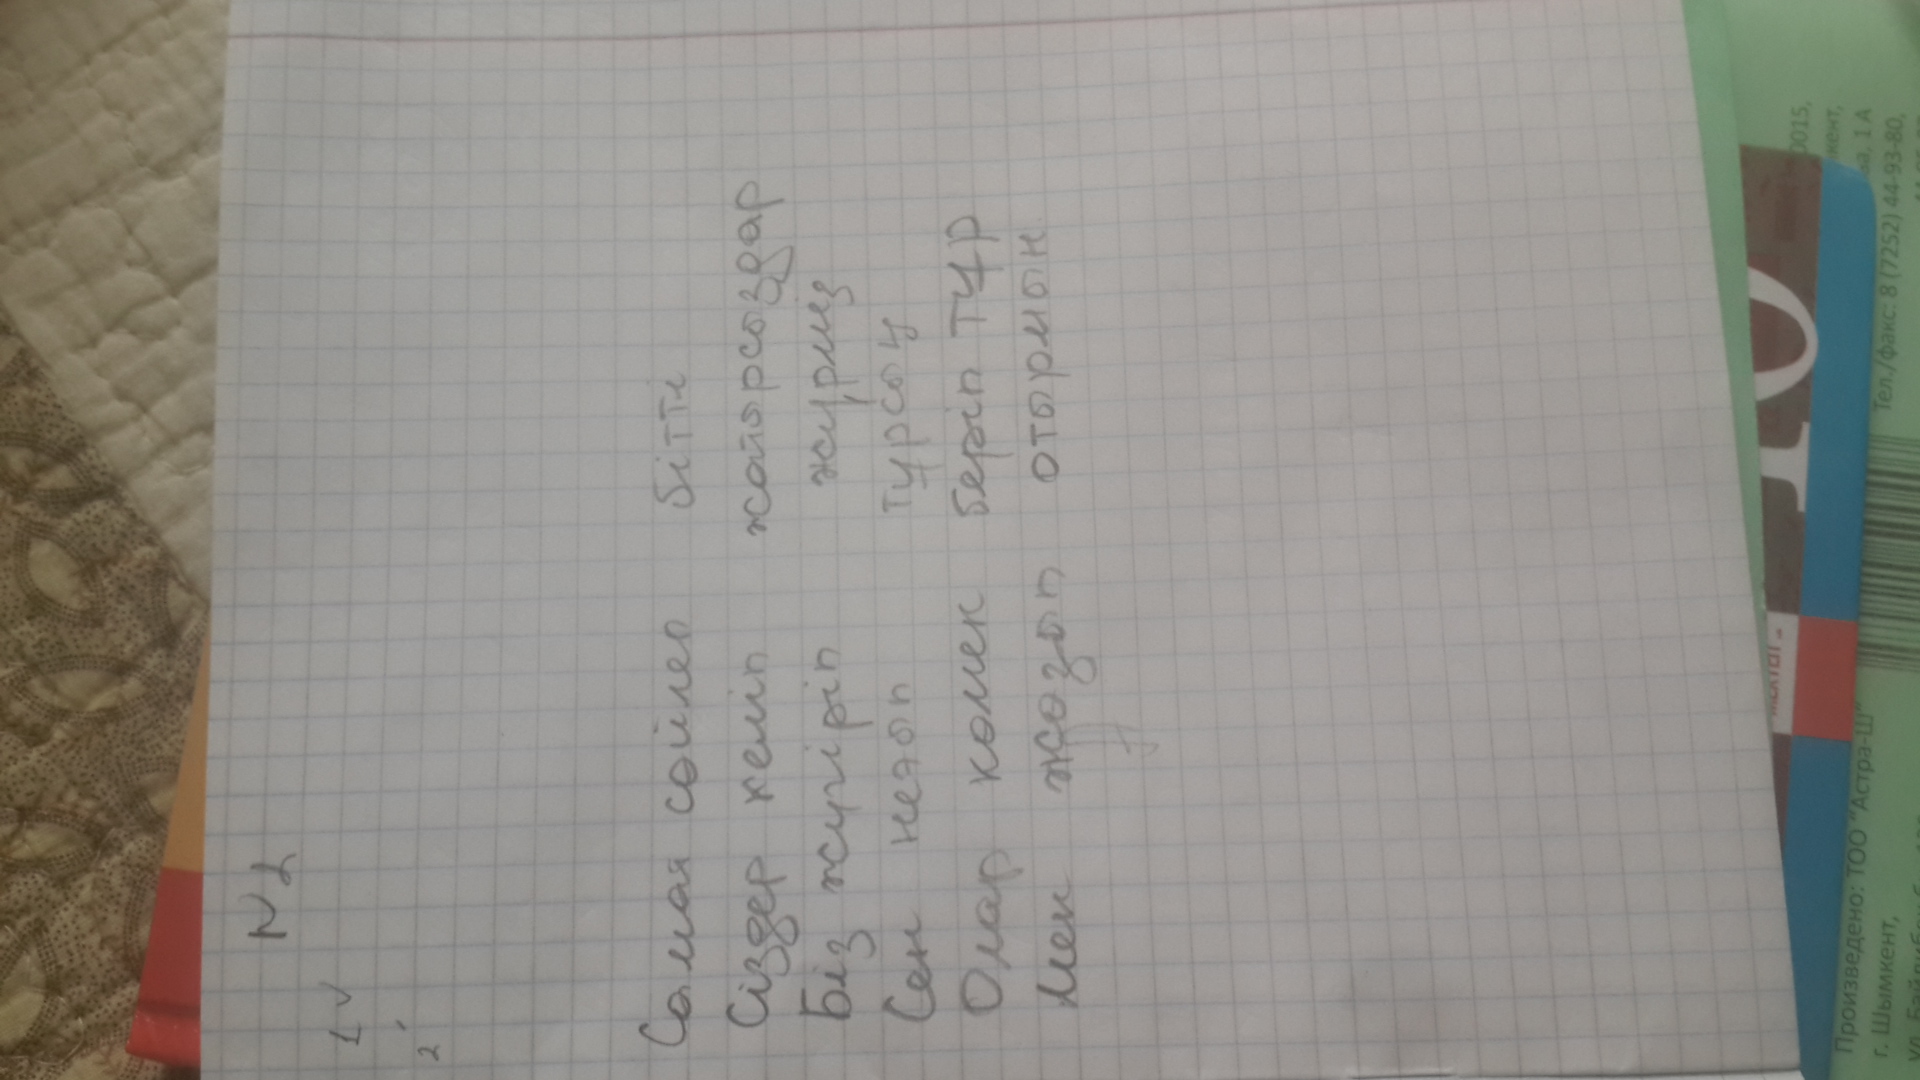 N 1
1 v
2.
Салмая сөйлео бітті
Сіздер келіп жатарсыздар
Біз жүгіріп жүрміз
Сен неяоп тұрсың
Олар көмек беріп тұр
Мен жазып отырмын
Произведено: ТОО "Астра-Ш"
г. Шымкент,
Тел./факс: 8 (7252) 44-93-80,